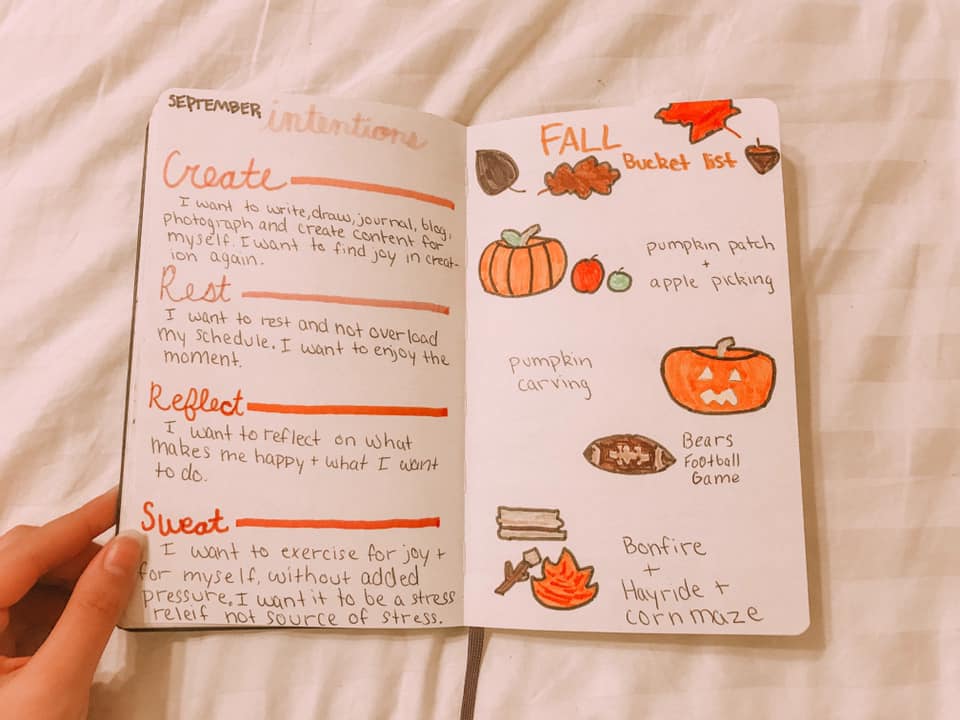 SEPTEMBER intentions
Create
I want to write, draw, journal, blog,
photograph and create content for
myself. I want to find joy in creat-
ion again.
Rest
I want to rest and not overload
my schedule. I want to enjoy the
moment.
Reflect
I want to reflect on what
makes me happy + what I want
to do.
Sweat
I want to exercise for joy +
for myself, without added
pressure. I want it to be a stress
releif not source of stress.
FALL
Bucket list
pumpkin patch
+
apple picking
pumpkin
carving
Bears
Football
Game
Bonfire
+
Hayride +
corn maze